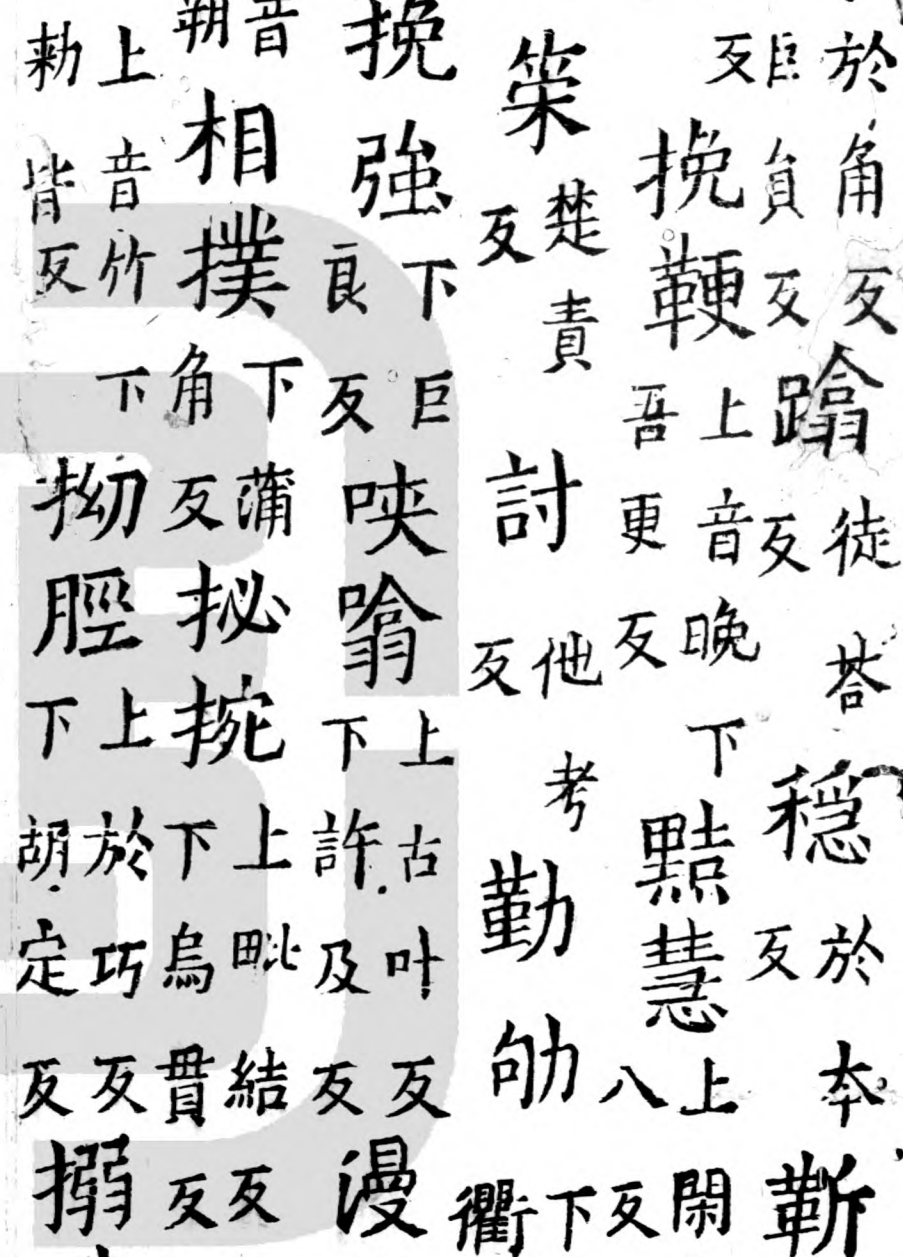 於角反巨負反蹹徒荅反穩於夲反靳
反挽鞕上音晚下吾更反黠慧上閑八反下
筞楚責反討他考反勤劬衢
挽強下巨良反唊噏上古叶反下許及反漫
音朔相撲下蒲角反㧙捥上毗結反下烏貫反
上音竹下勑皆反抝脛上於巧反下胡定反搦